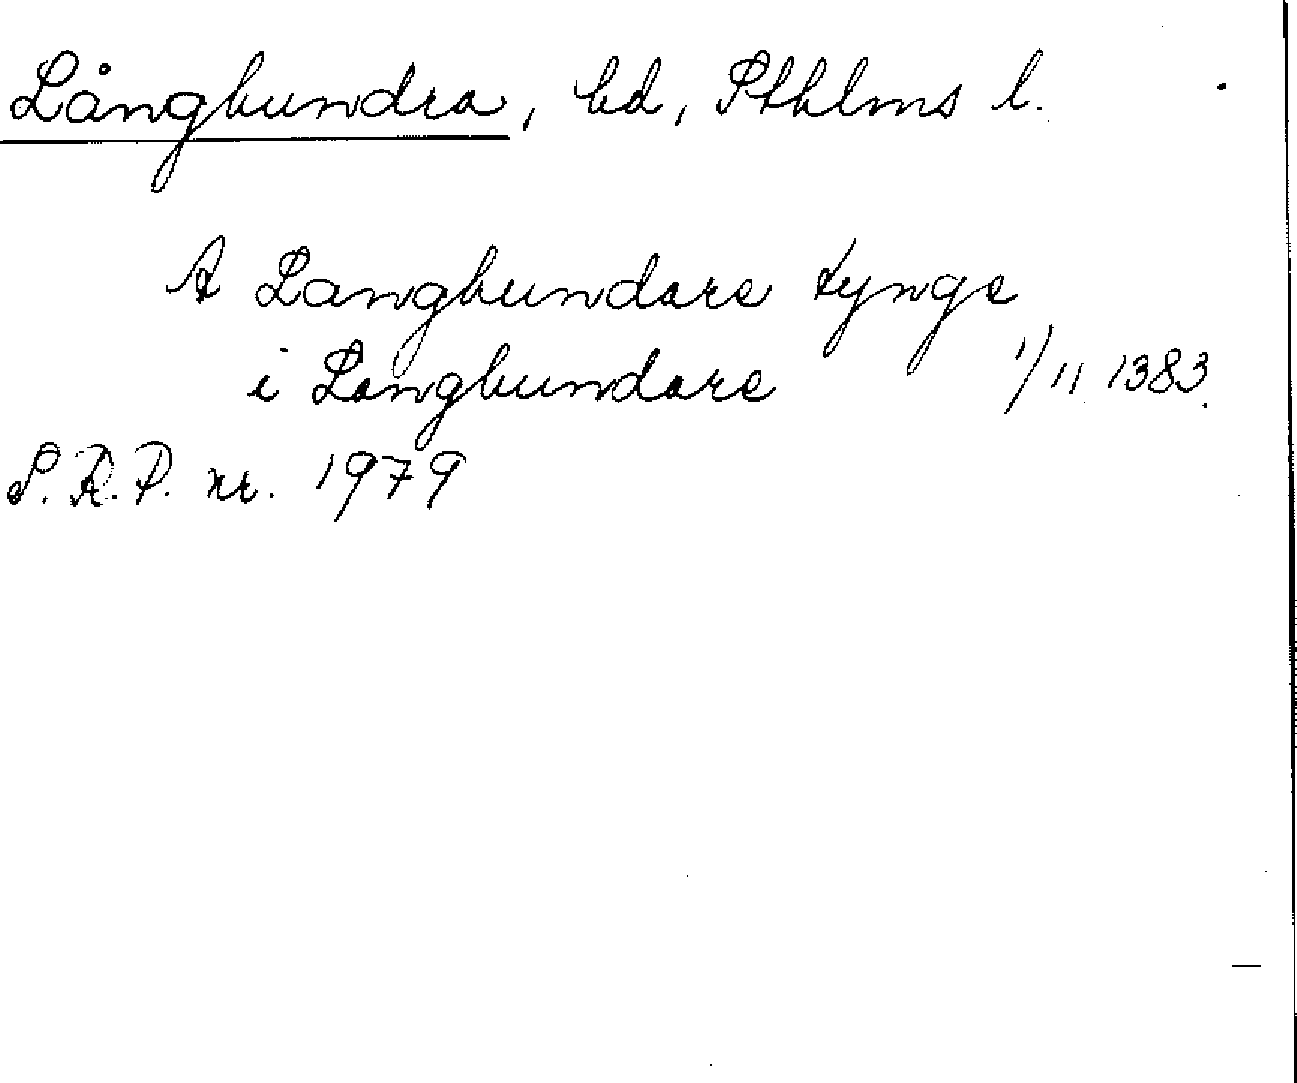 Långhundra, hd, Sthlms l.
A Langhundare tynge
i Langhundare 1/11 1383.
S.R.P. nr. 1979